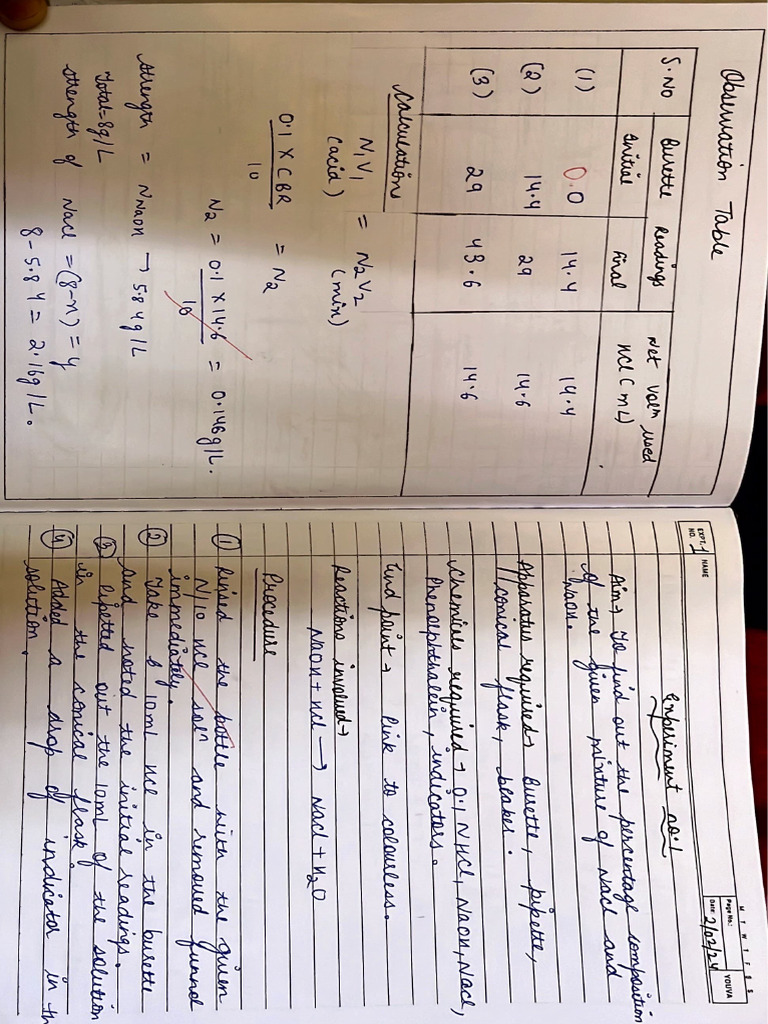 Observation Table
S.No Burette Readings Net Volm used HCl (mL)
Initial Final
(1) 0.0 14.4 14.4
(2) 14.4 29 14.6
(3) 29 43.6 14.6
Calculation
N1V1 = N2V2
(acid) (mix)
0.1 X CBR / 10 = N2
N2 = 0.1 X 14.6 / 10 = 0.146g/L.
Strength = NNaOH → 5.84g/L
Total=8g/L
Strength of NaCl = (8-x) = y
8-5.84 = 2.16g/L.
M T W T F S S
EXPT. NO. 1 NAME
Page No.:
Date: 2/02/24 YOUVA
Experiment no.1
Aim→ To find out the percentage composition
of the given mixture of NaCl and
NaOH.
Apparatus required→ Burette, pipette,
conical flask, beaker.
Chemicals required → 0.1 N HCl, NaOH, NaCl,
Phenolphthalein, indicators.
End point → Pink to colourless.
Reactions involved→
NaOH + HCl → NaCl + H2O
Procedure
① Rinsed the bottle with the given
N/10 HCl solⁿ and removed funnel
immediately.
② Take 10mL HCl in the burette
and noted the initial readings.
③ Pipetted out the 10mL of the solution
in the conical flask.
④ Added a drop of indicator in th
solution.